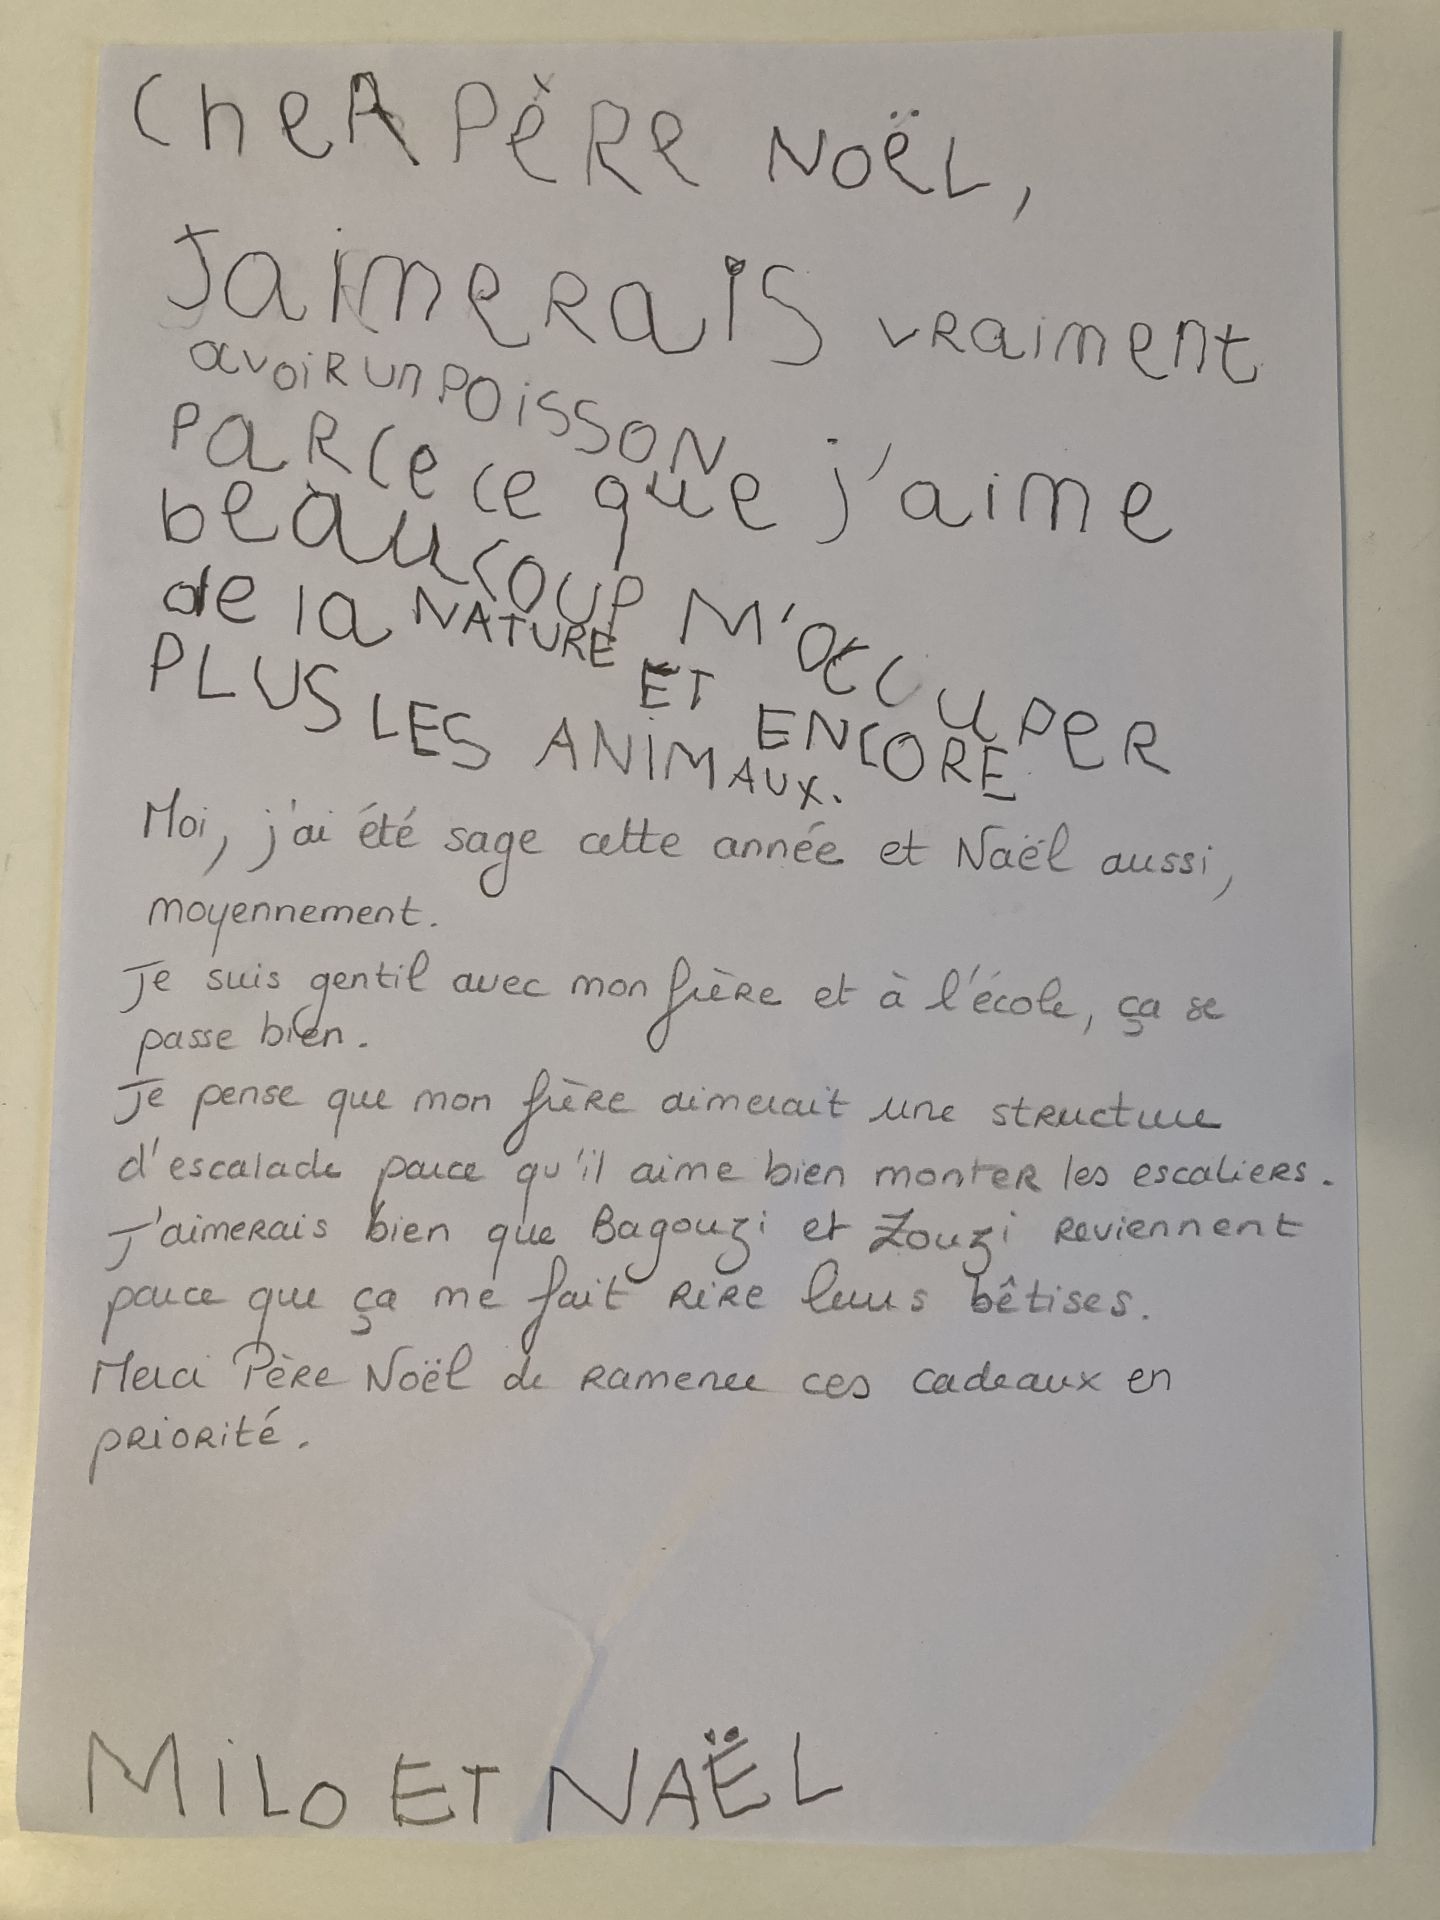 CheR PÈRe NOËL,
Jaimerais vraiment
avoir un POISSON
PaRCe ce que j'aime
beaucoup M'OCCUPER
de la NATURE ET ENCORE
PLUS LES ANIMAUX.
Moi, j'ai été sage cette année et Naël aussi,
moyennement.
Je suis gentil avec mon frère et à l'école, ça se
passe bien.
Je pense que mon frère aimerait une structure
d'escalade parce qu'il aime bien monter les escaliers.
J'aimerais bien que Bagouzi et Zouzi reviennent
parce que ça me fait rire leurs bêtises.
Merci Père Noël de ramener ces cadeaux en
priorité.
MiLO ET NAËL